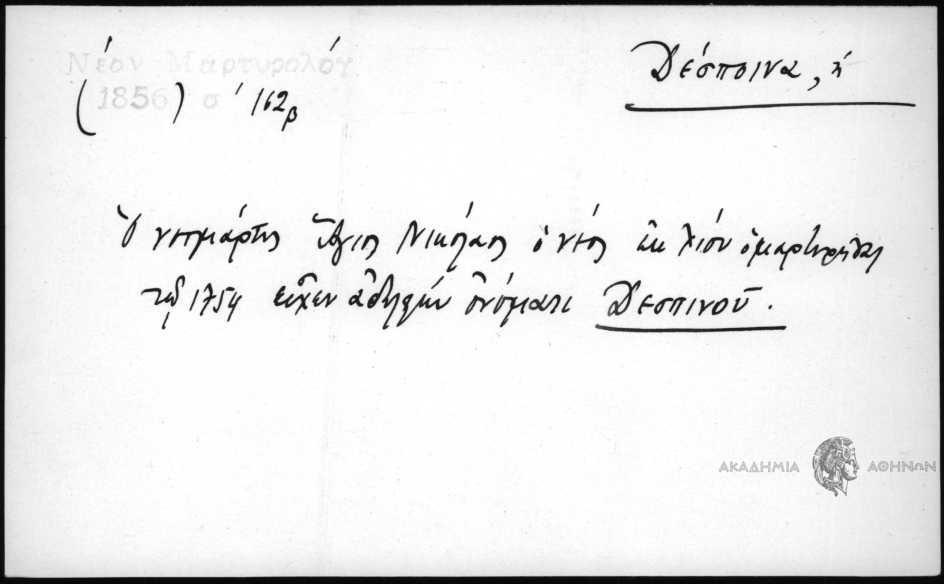 Νέον Μαρτυρολόγ
(1856) σ' 162β
Δέσποινα, ἡ
Ὁ νεομάρτης Ἅγιος Νικόλαος ὁ νέος ἐκ Χίου ὁ μαρτυρήσας
τῷ 1754 εἶχεν ἀδελφὴν ὀνόματι Δεσπινοῦ.
ΑΚΑΔΗΜΙΑ ΑΘΗΝΩΝ